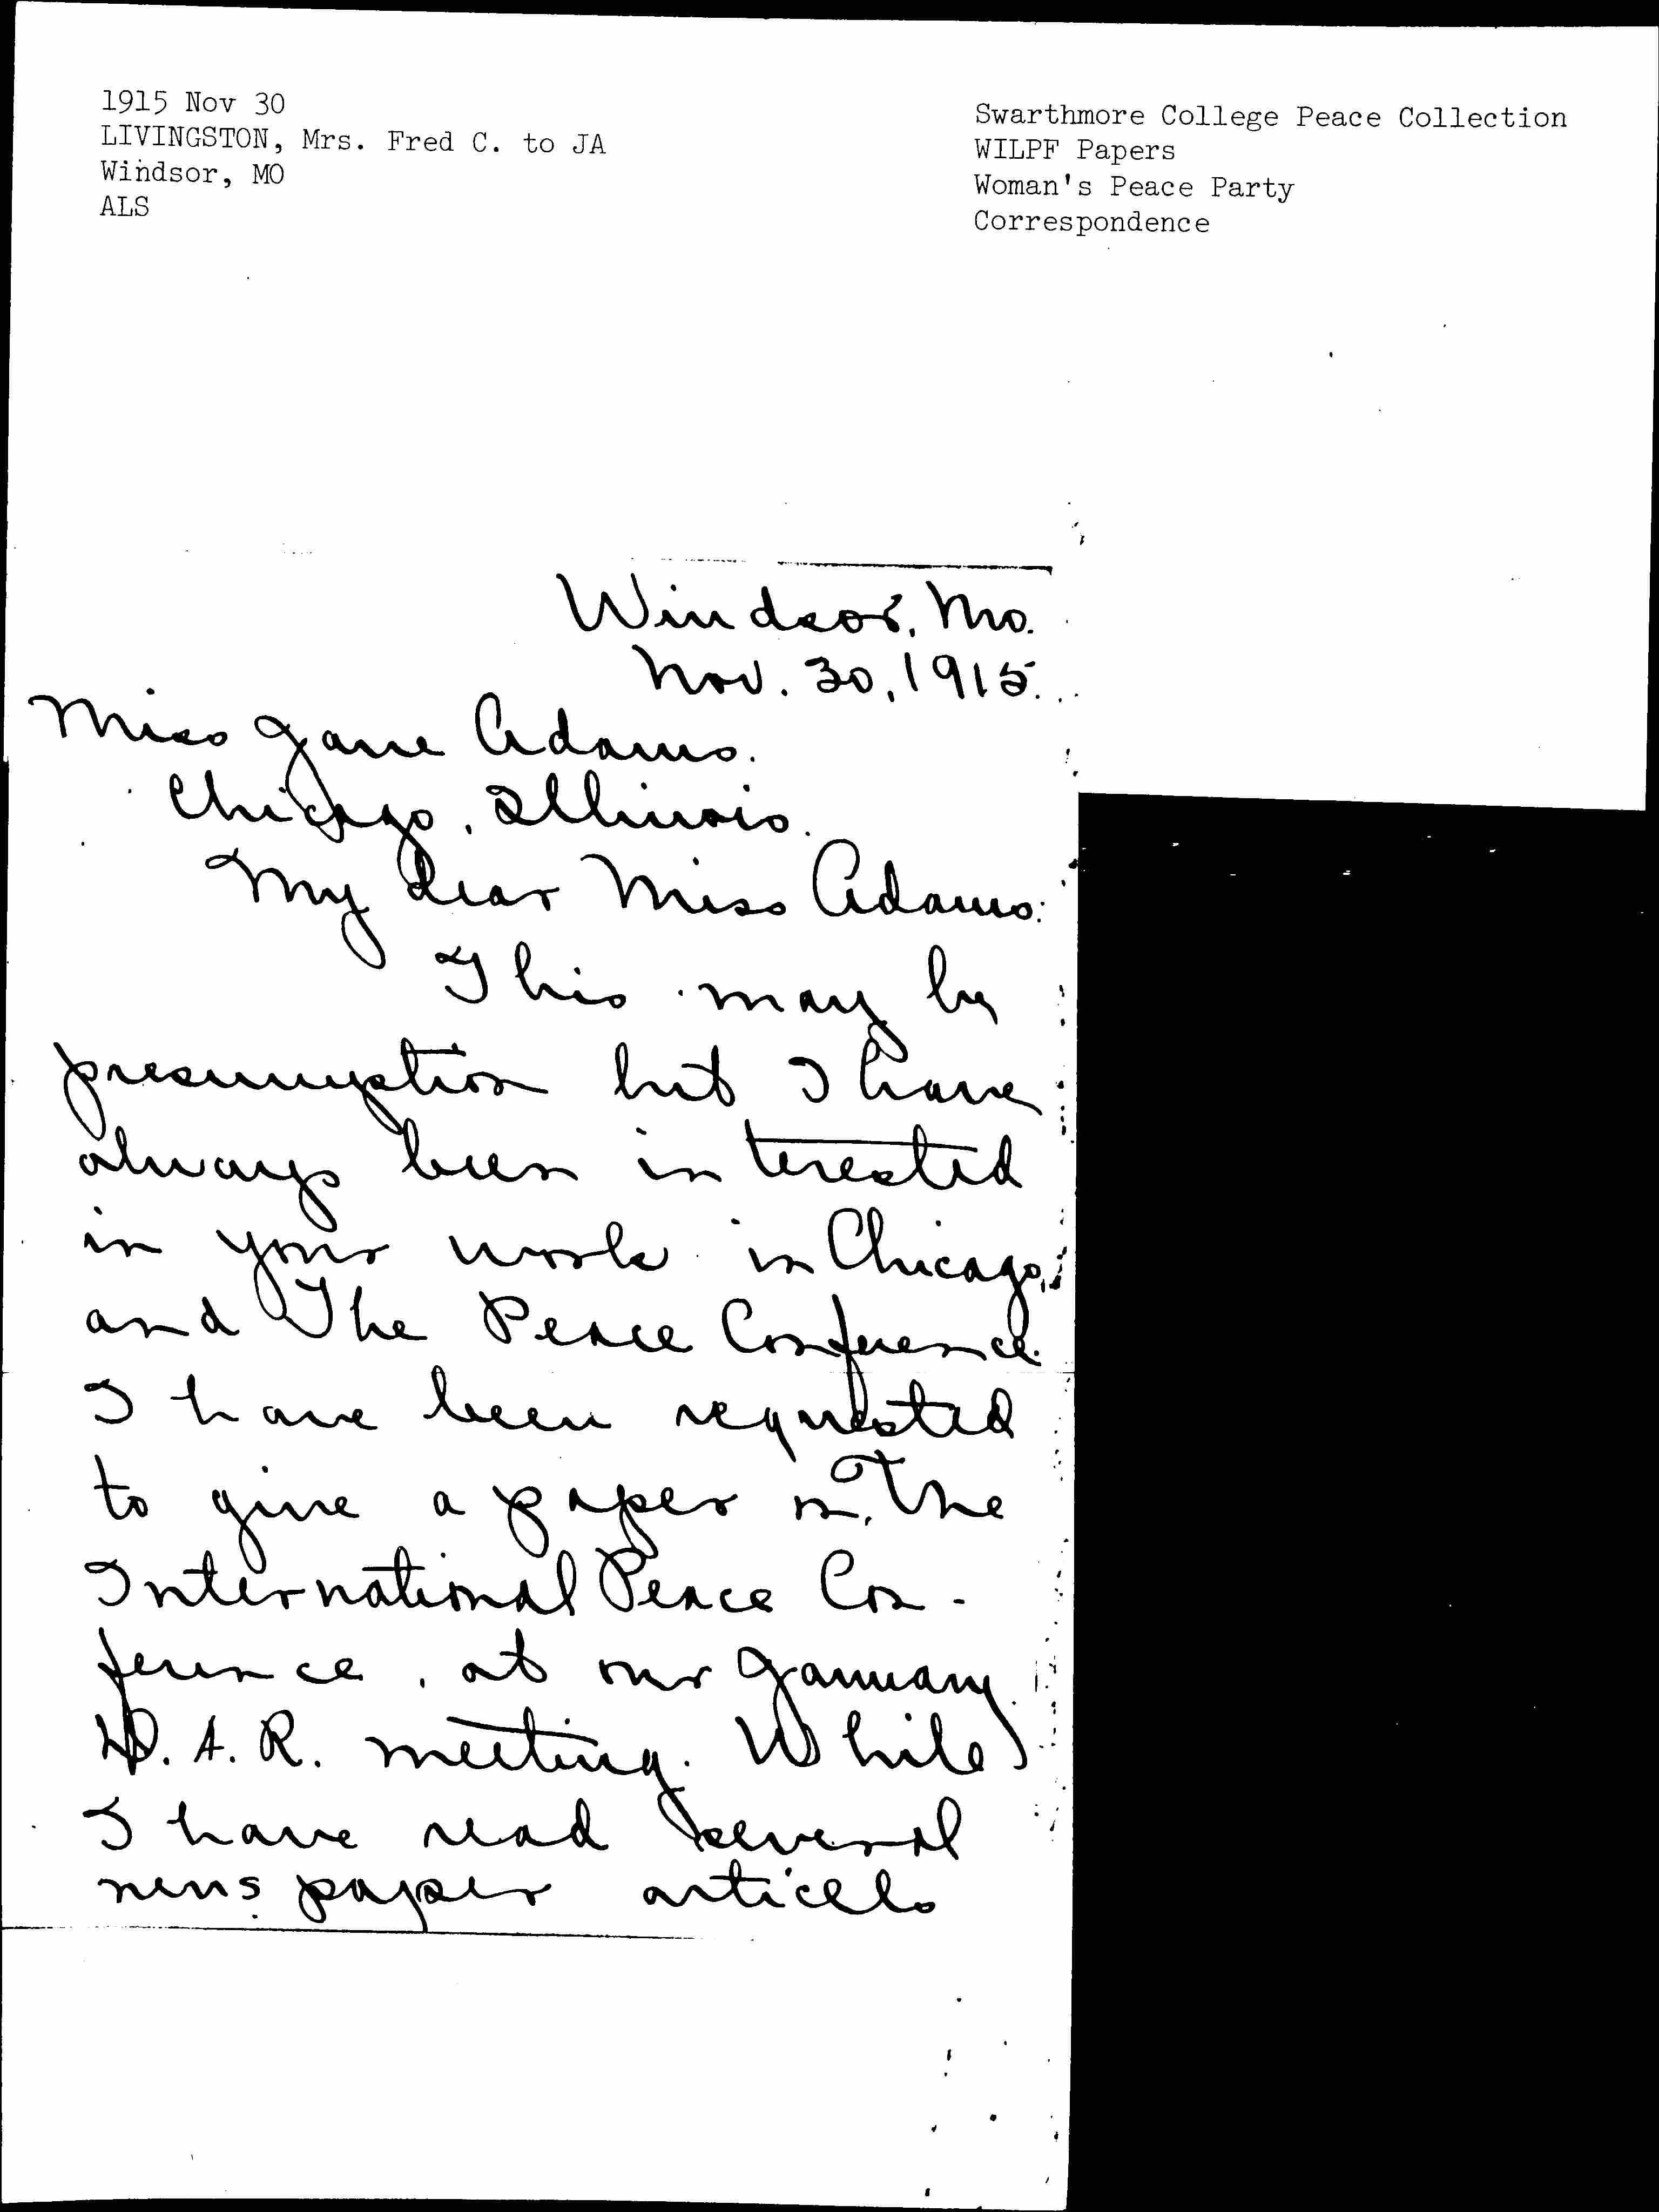 1915 Nov 30
LIVINGSTON, Mrs. Fred C. to JA
Windsor, MO
ALS
Swarthmore College Peace Collection
WILPF Papers
Woman's Peace Party
Correspondence
Windsor, Mo.
Nov. 30, 1915.
Miss Jane Adams.
Chicago, Illinois.
My dear Miss Adams:
This may be
presumption but I have
always been interested
in your work in Chicago,
and The Peace Conference.
I have been requested
to give a paper on The
International Peace Con-
ference, at our January
D. A. R. meeting. While
I have read several
news paper articels